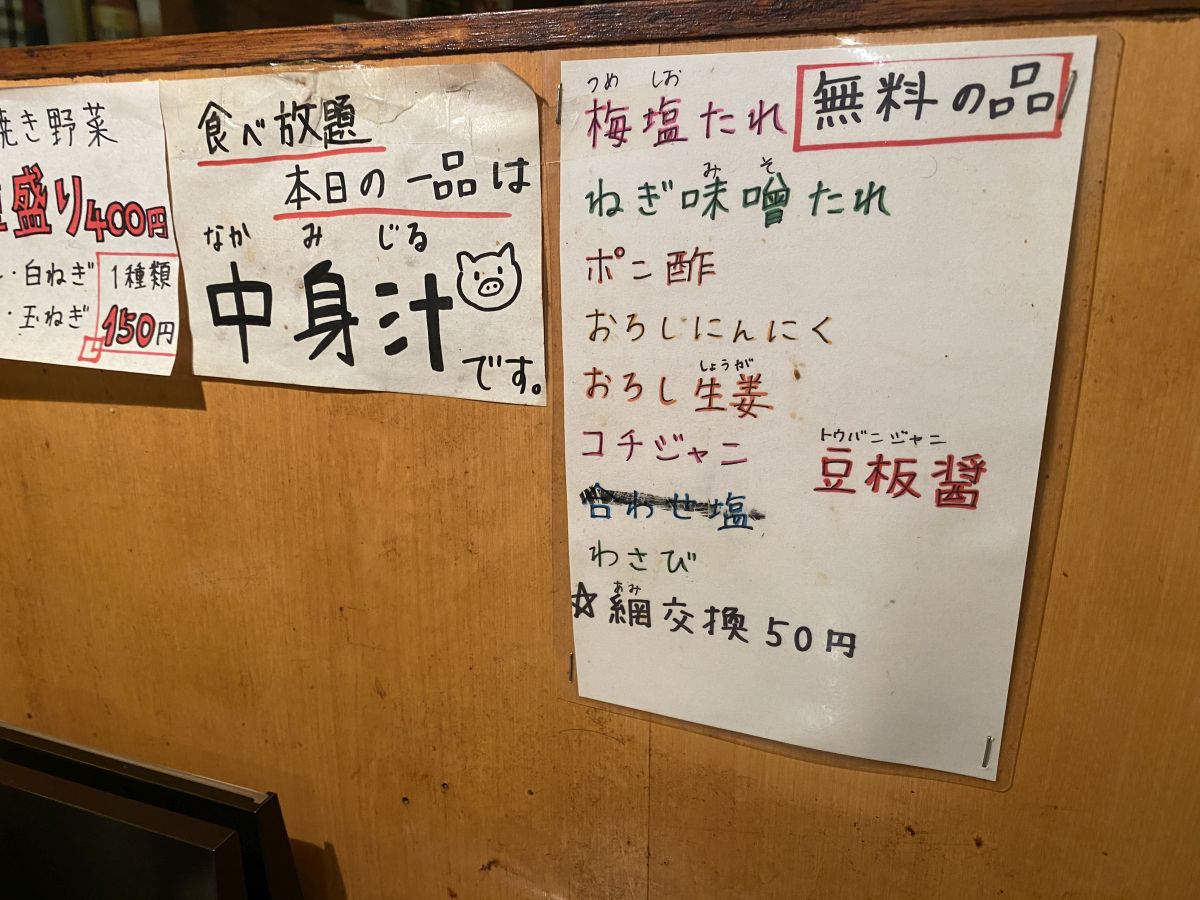 焼き野菜
盛り400円
・白ねぎ
・玉ねぎ
1種類
150円
食べ放題
本日の一品は
なか み じる
中身汁
です。
無料の品
つめ しお
梅塩たれ
みそ
ねぎ味噌たれ
ポン酢
おろしにんにく
しょうが
おろし生姜
コチジャン
トウバンジャン
豆板醤
合わせ塩
わさび
あみ
☆網交換50円